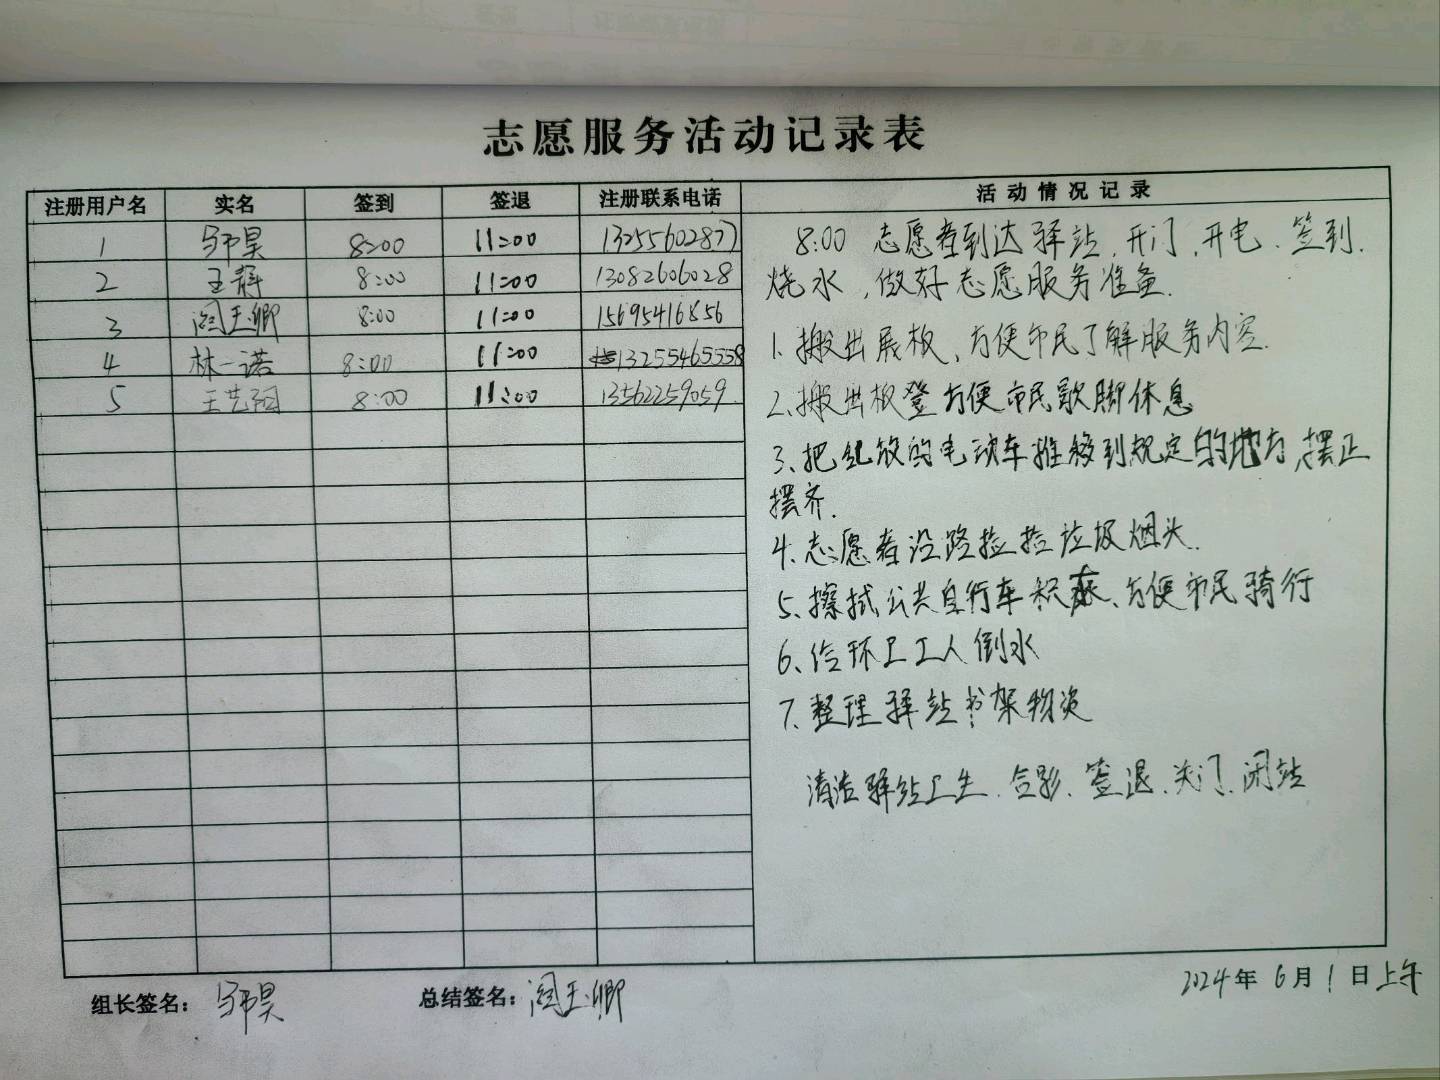 志愿服务活动记录表
注册用户名 实名 签到 签退 注册联系电话 活动情况记录
1 邹昊 8:00 11:00 13255602877
2 王静 8:00 11:00 13082606028
3 阎玉卿 8:00 11:00 15695416856
4 林一诺 8:00 11:00 13255465558
5 王艺 8:00 11:00 13562259059
8:00 志愿者到达驿站、开门、开电、签到、
烧水,做好志愿服务准备.
1、搬出展板、方便市民了解服务内容.
2、搬出板凳方便市民歇脚休息
3、把乱放的电动车推移到规定的地方,摆正
摆齐.
4、志愿者沿路捡拾垃圾烟头.
5、擦拭公共自行车积灰、方便市民骑行
6、给环卫工人倒水
7、整理驿站书架物资
清洁驿站卫生、合影、签退、关门、闭站
组长签名: 邹昊 总结签名: 阎玉卿 2024年6月1日上午